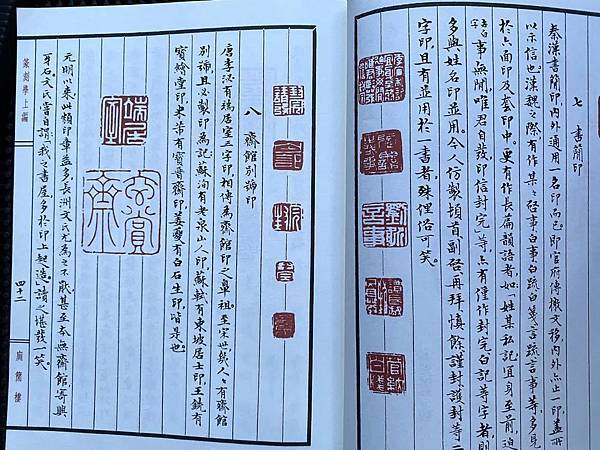 七 書簡印
秦漢書簡印,內外適用一名印而已,即官府傳檄文移,內外亦止一印,盡所
以示信也。漢魏之際有作某之啟事白事白疏白箋言疏言事等,多見
於六面印及套印中。更有作長篇韻語者,如「姓某私記宜身至前迫
事毋閒,唯君自發,印信封完」等,亦有僅作封完白記等字者,則
多與姓名印並用。今人仿製頓首副啓再拜慎餘謹封護封等二
字印,且有並用於一書者,殊俚俗可笑。
八 齋館別號印
唐李泌有端居室三字印,相傳為齋館印之鼻祖。至宋世幾人人有齋館
別號,且必製印為記,蘇洵有老泉山人印,蘇軾有東坡居士印,王銑有
寶繪堂印,米芾有寶晉齋印,姜夔有白石生印,皆是也。
端居室
玄賞齋
元明以來,此類印章益多,長洲文氏尤為之不厭,甚至本無齋館,寄興
牙石,文氏嘗自謂「我之書屋,多於印上起造」,讀之堪發一笑。
篆刻學上編
四十二